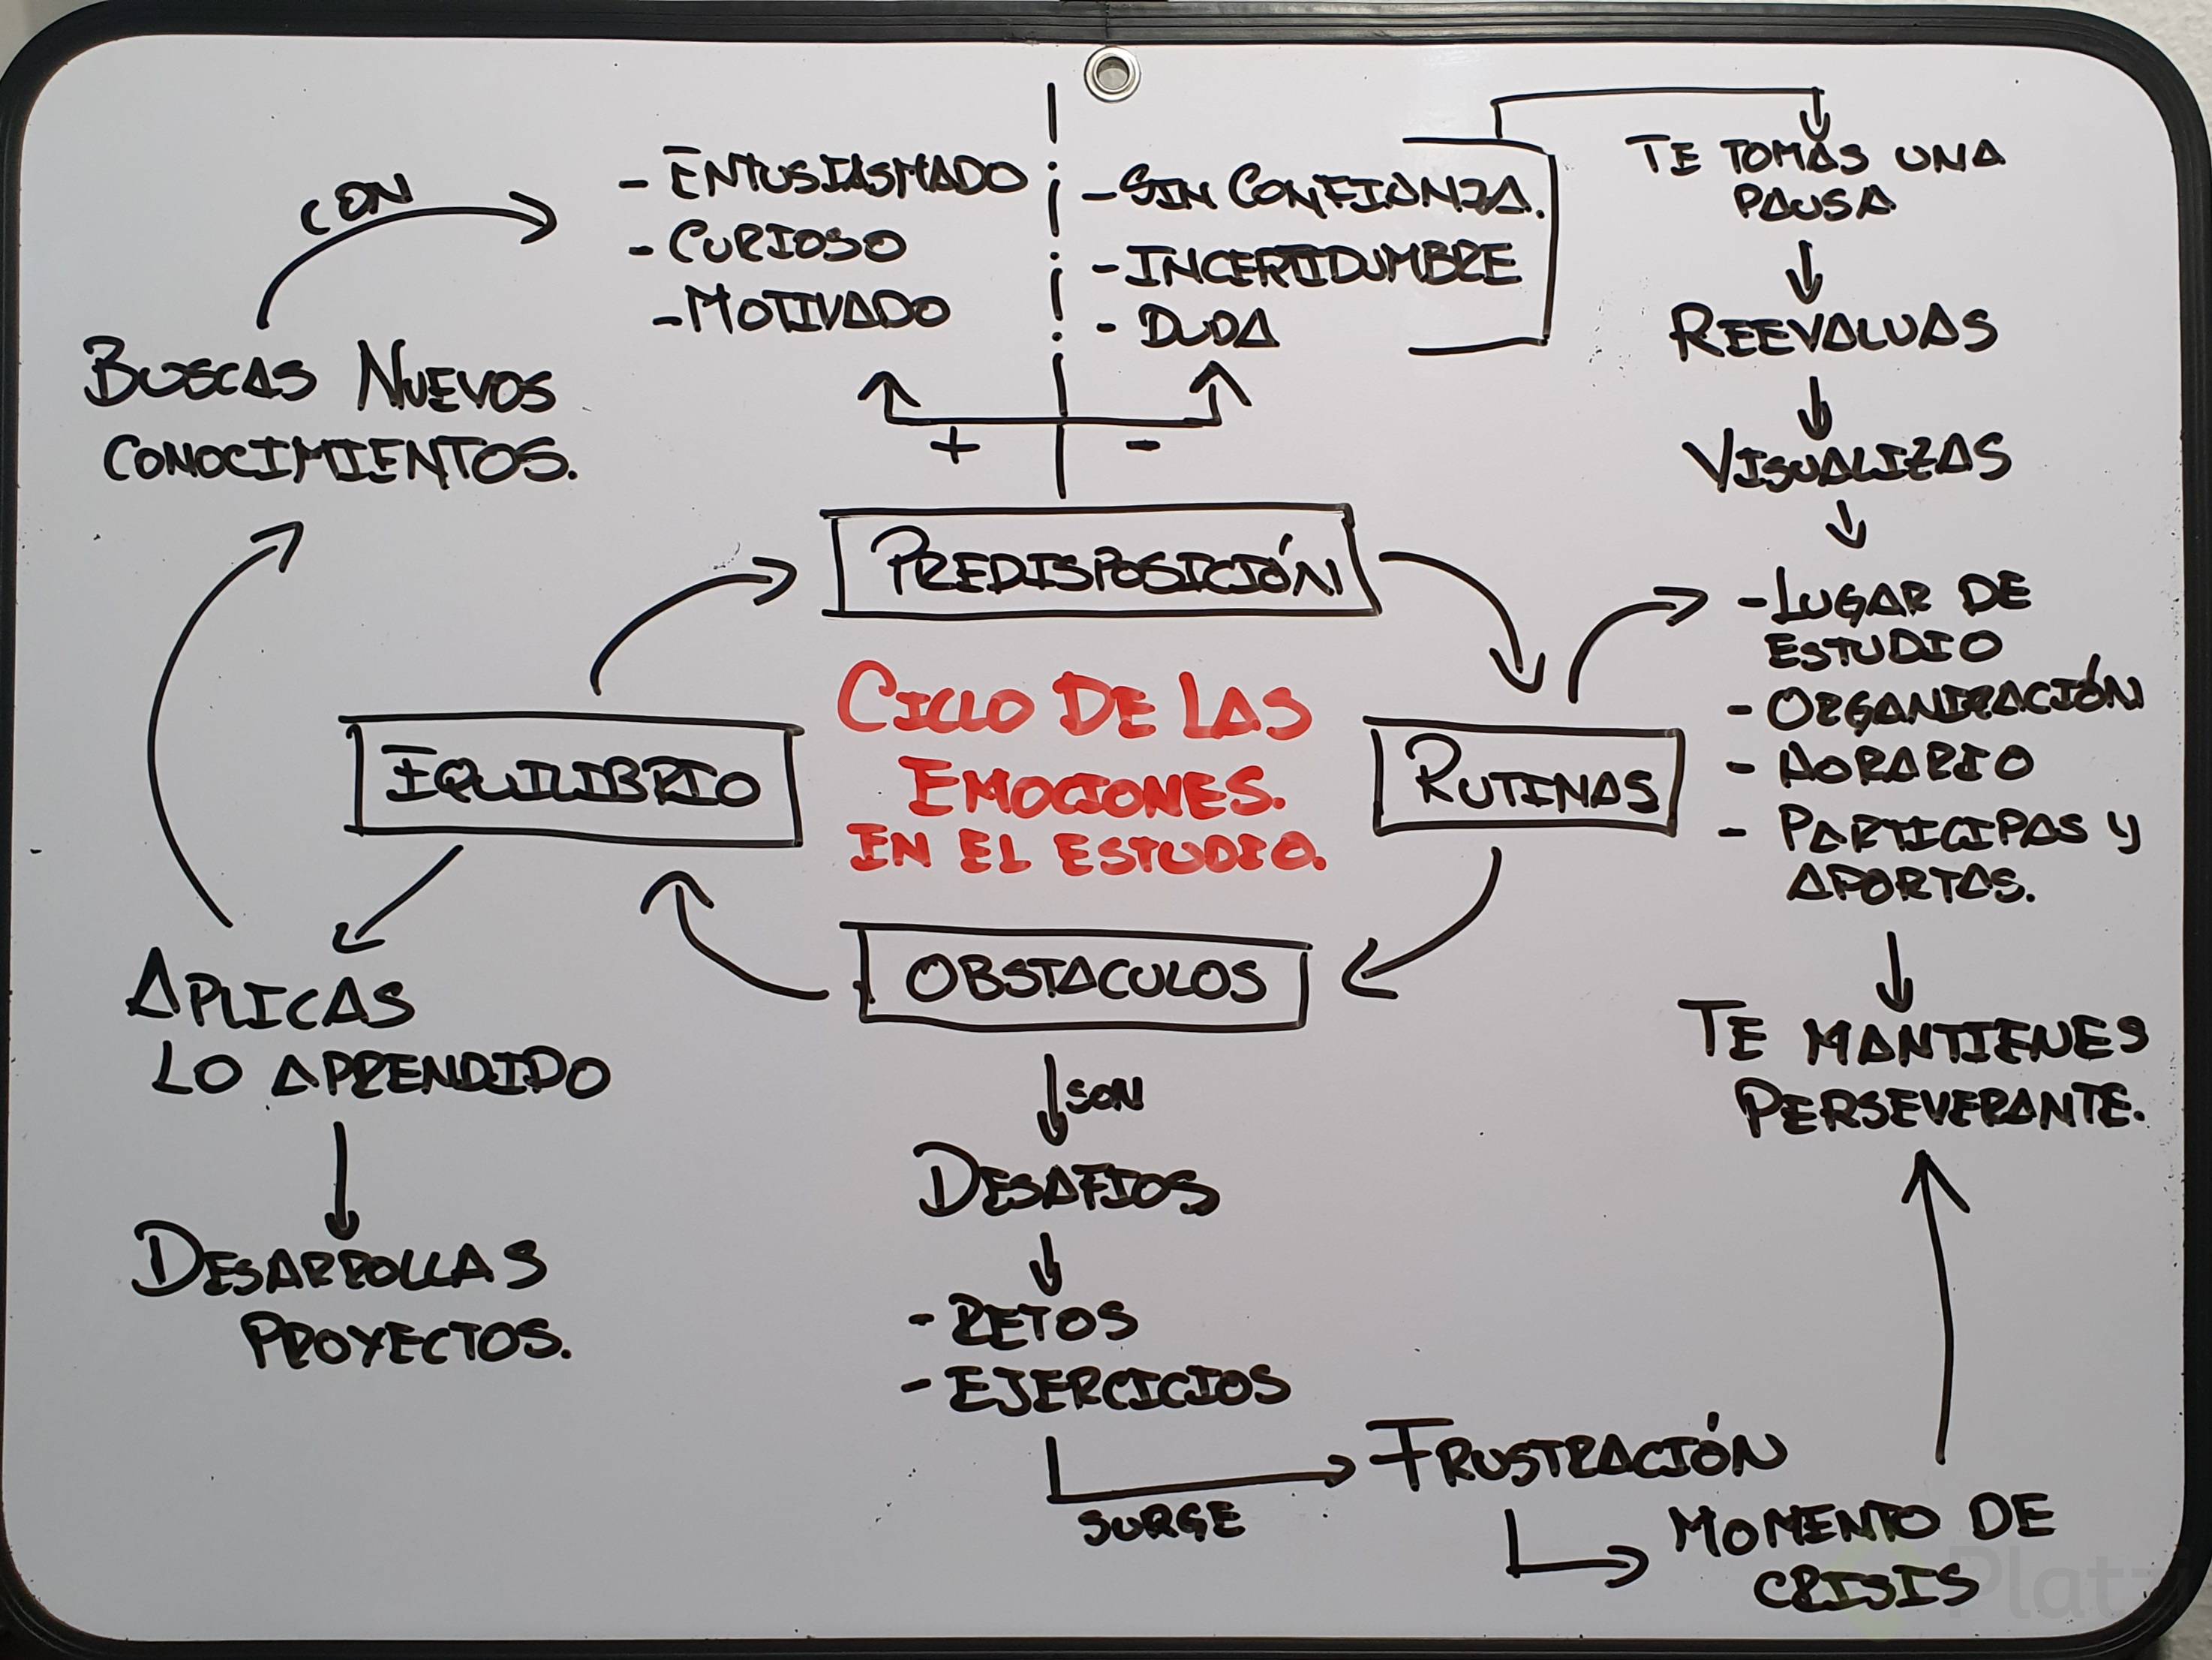 CON
- ENTUSIASMADO
- CURIOSO
- MOTIVADO
- SIN CONFIANZA.
- INCERTIDUMBRE
- DUDA
+ -
TE TOMAS UNA
PAUSA
REEVALUAS
VISUALIZAS
BUSCAS NUEVOS
CONOCIMIENTOS.
PREDISPOSICIÓN
CICLO DE LAS
EMOCIONES.
EN EL ESTUDIO.
EQUILIBRIO
RUTINAS
- LUGAR DE
ESTUDIO
- ORGANIZACIÓN
- HORARIO
- PARTICIPAS Y
APORTAS.
TE MANTIENES
PERSEVERANTE.
OBSTACULOS
SON
DESAFIOS
- RETOS
- EJERCICIOS
SURGE
FRUSTRACIÓN
MOMENTO DE
CRISIS
APLICAS
LO APRENDIDO
DESARROLLAS
PROYECTOS.